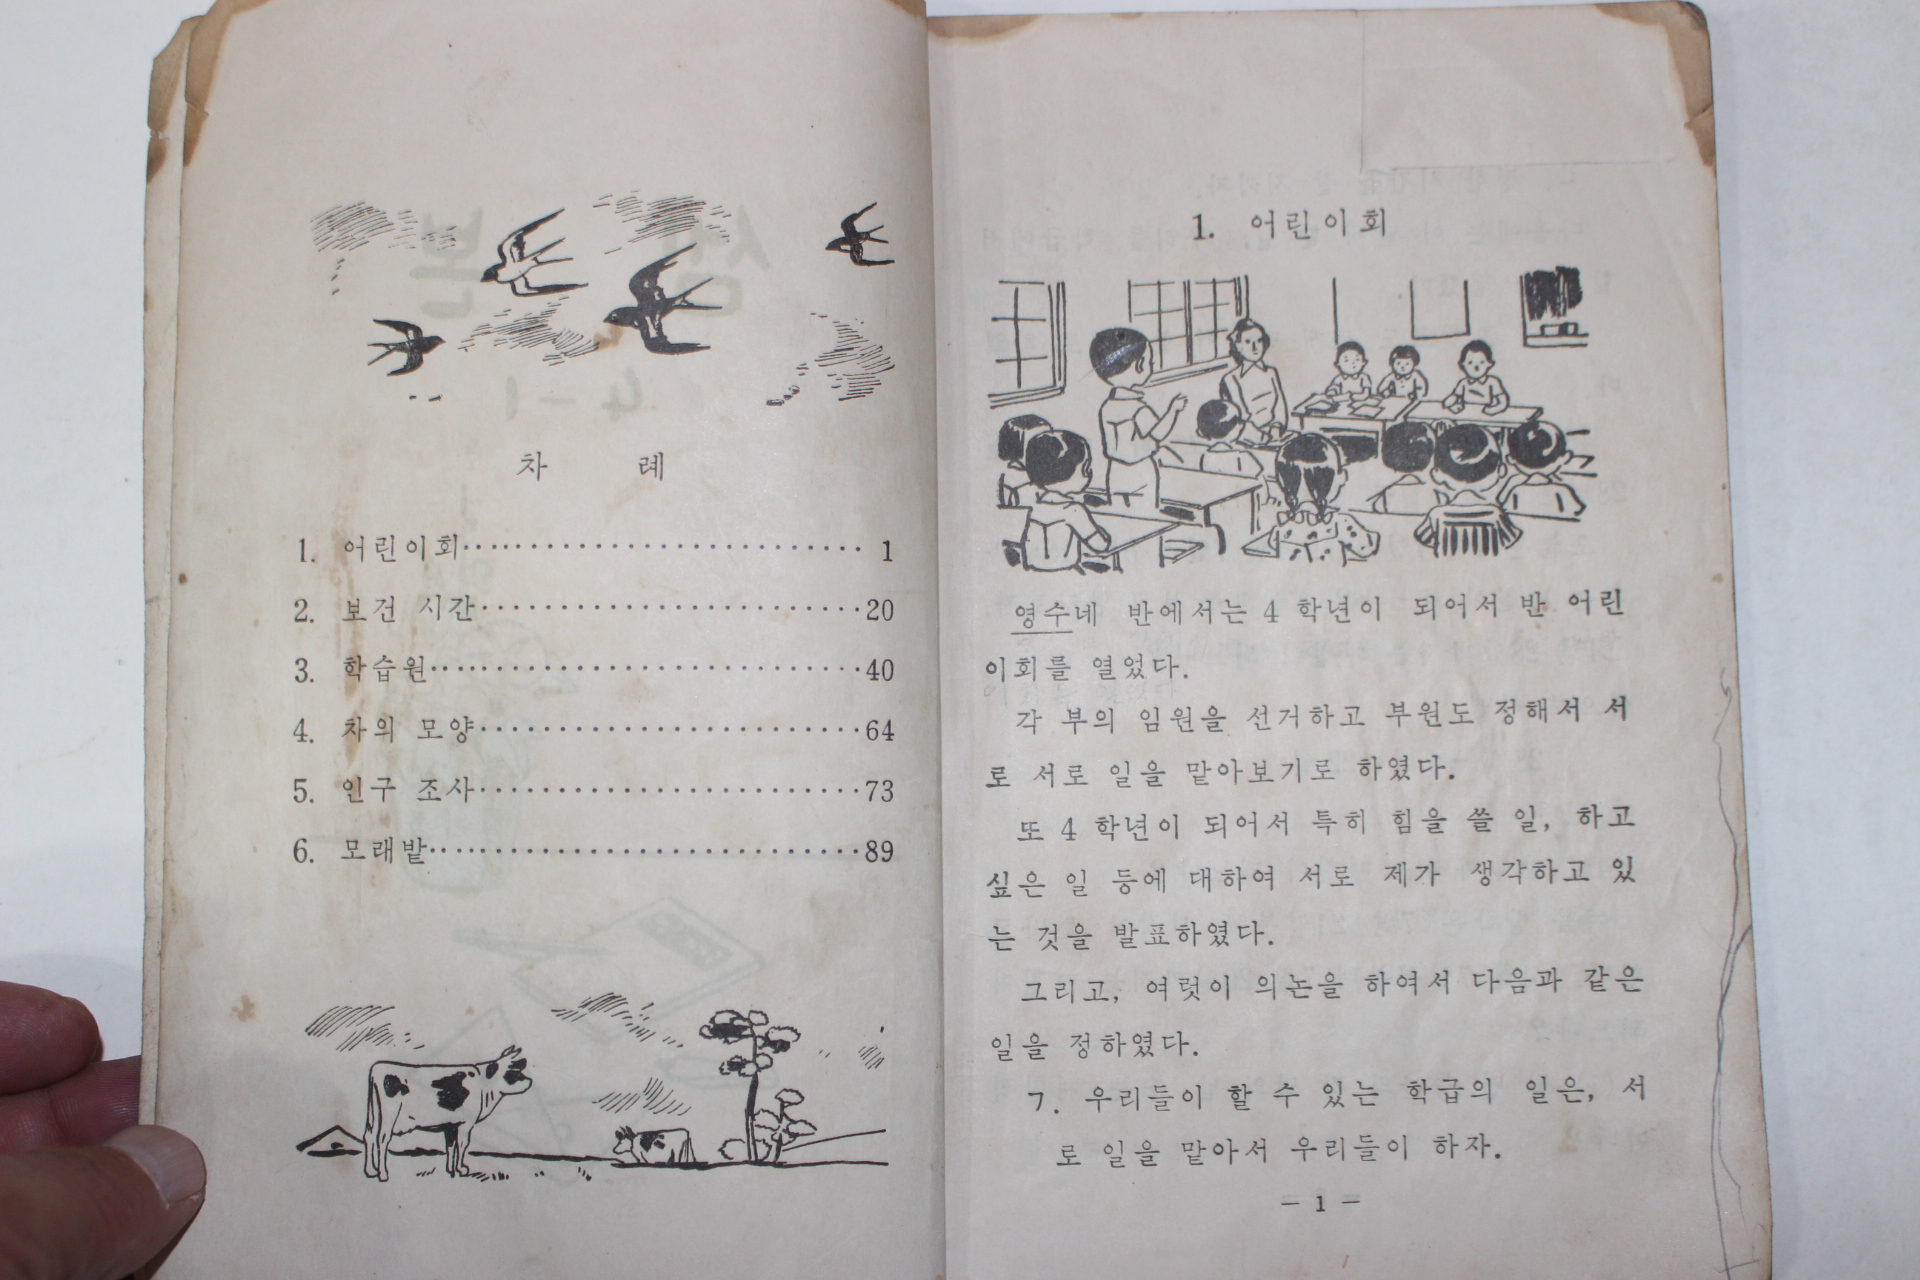 차 례
1. 어린이회 1
2. 보건 시간 20
3. 학습원 40
4. 차의 모양 64
5. 인구 조사 73
6. 모래밭 89
1. 어린이회
영수네 반에서는 4 학년이 되어서 반 어린
이회를 열었다.
각 부의 임원을 선거하고 부원도 정해서 서
로 서로 일을 맡아보기로 하였다.
또 4 학년이 되어서 특히 힘을 쓸 일, 하고
싶은 일 등에 대하여 서로 제가 생각하고 있
는 것을 발표하였다.
그리고, 여럿이 의논을 하여서 다음과 같은
일을 정하였다.
ㄱ. 우리들이 할 수 있는 학급의 일은, 서
로 일을 맡아서 우리들이 하자.
— 1 —